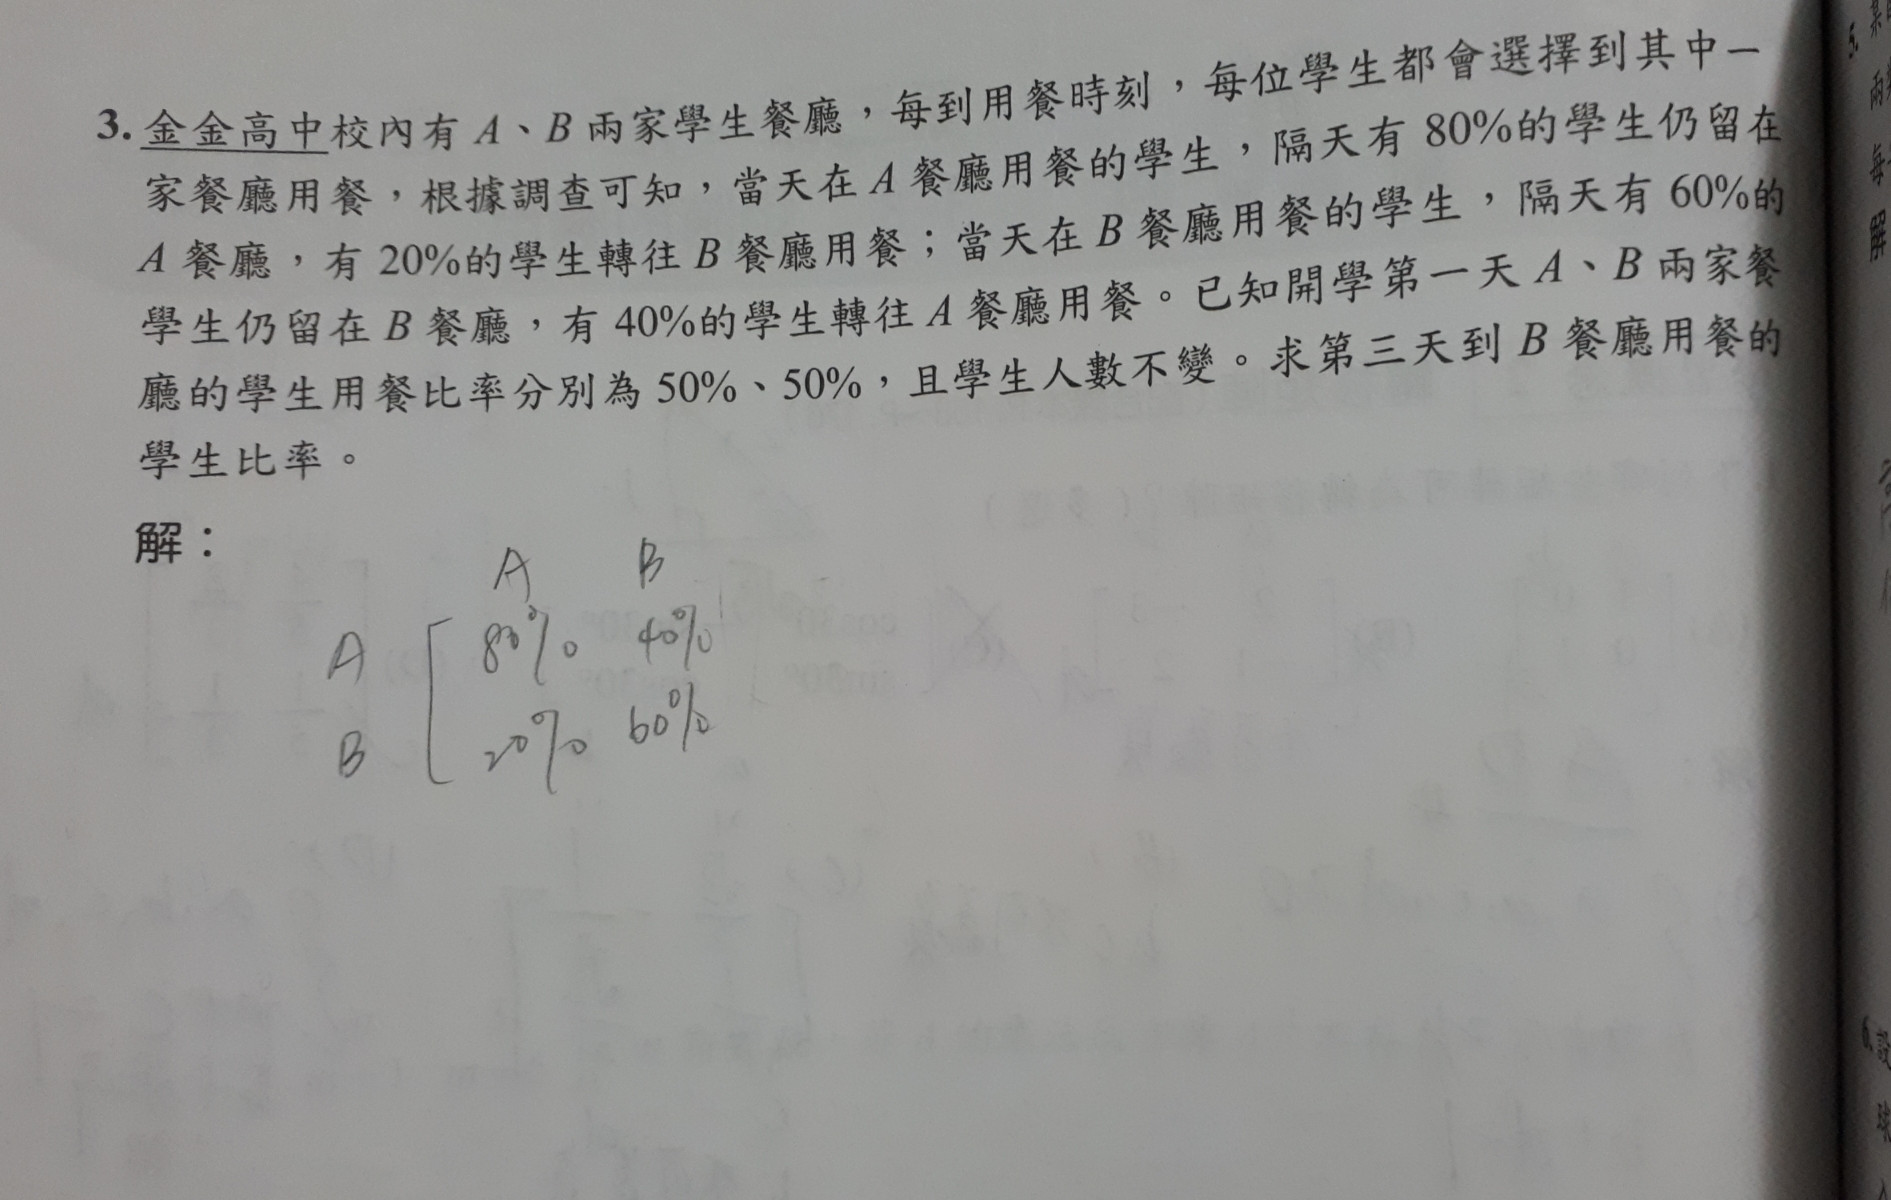 3. 金金高中校內有 A、B 兩家學生餐廳，每到用餐時刻，每位學生都會選擇到其中一
家餐廳用餐，根據調查可知，當天在 A 餐廳用餐的學生，隔天有 80%的學生仍留在
A 餐廳，有 20%的學生轉往 B 餐廳用餐；當天在 B 餐廳用餐的學生，隔天有 60%的
學生仍留在 B 餐廳，有 40%的學生轉往 A 餐廳用餐。已知開學第一天 A、B 兩家餐
廳的學生用餐比率分別為 50%、50%，且學生人數不變。求第三天到 B 餐廳用餐的
學生比率。
解：
A B
A 80% 40%
B 20% 60%
5.
每
解
6. 設